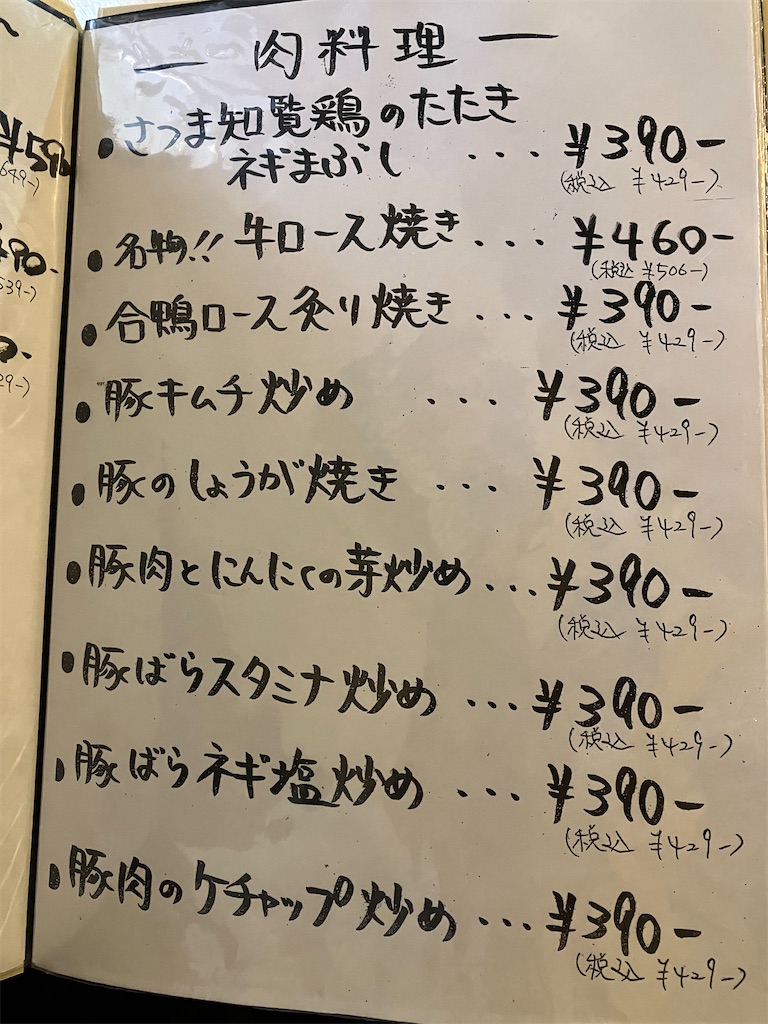 ― 肉料理 ―
• さつま知覧鶏のたたき
ネギまぶし ... ¥390-
(税込 ¥429-)
• 名物!! 牛ロース焼き ... ¥460-
(税込 ¥506-)
• 合鴨ロース炙り焼き ... ¥390-
(税込 ¥429-)
• 豚キムチ炒め ... ¥390-
(税込 ¥429-)
• 豚のしょうが焼き ... ¥390-
(税込 ¥429-)
• 豚肉とにんにくの芽炒め ... ¥390-
(税込 ¥429-)
• 豚ばらスタミナ炒め ... ¥390-
(税込 ¥429-)
• 豚ばらネギ塩炒め ... ¥390-
(税込 ¥429-)
• 豚肉のケチャップ炒め ... ¥390-
(税込 ¥429-)